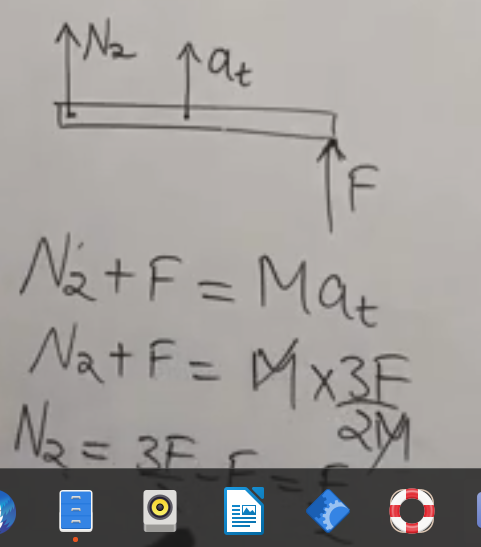 N₂
a_t
F
N₂ + F = Ma_t
N₂ + F = M × 3F/2M
N₂ = 3F - F =